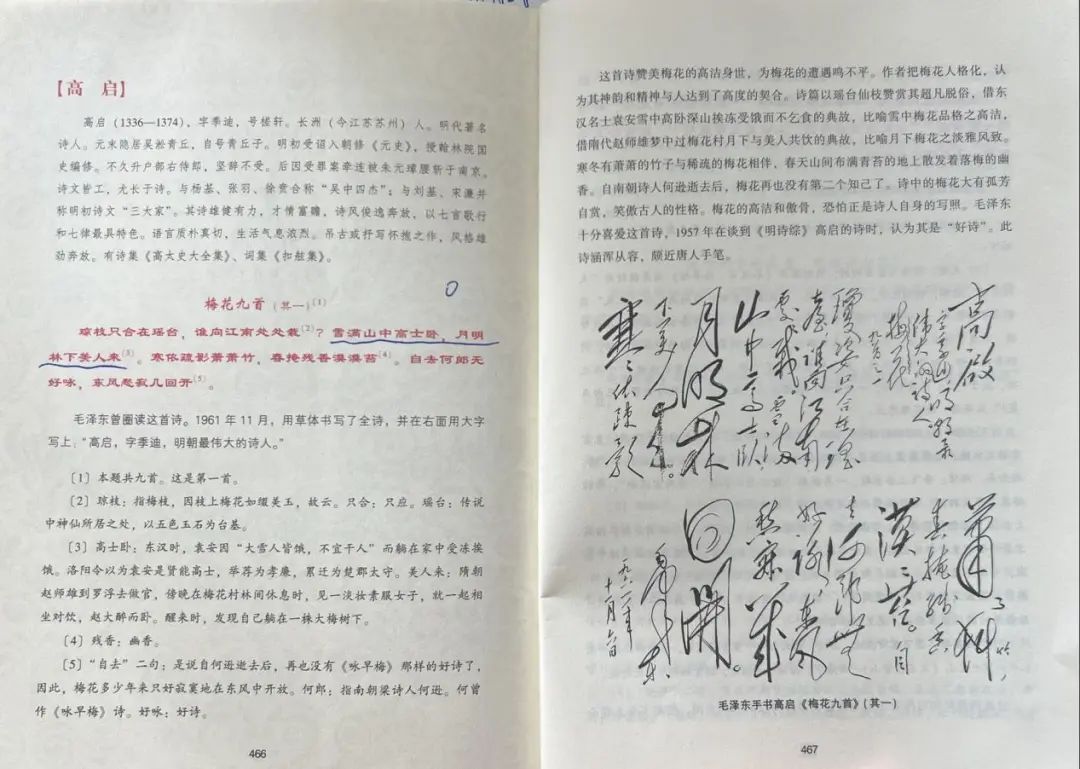 【高 启】
高启（1336—1374），字季迪，号槎轩。长洲（今江苏苏州）人。明代著名
诗人。元末隐居吴淞青丘，自号青丘子。明初受诏入朝修《元史》，授翰林院国
史编修。不久升户部右侍郎，坚辞不受。后因受罪案牵连被朱元璋腰斩于南京。
诗文皆工，尤长于诗。与杨基、张羽、徐贲合称“吴中四杰”；与刘基、宋濂并
称明初诗文“三大家”。其诗雄健有力，才情富赡，诗风俊逸奔放，以七言歌行
和七律最具特色。语言质朴真切，生活气息浓烈。吊古或抒写怀抱之作，风格雄
劲奔放。有诗集《高太史大全集》、词集《扣舷集》。
梅花九首（其一）〔1〕
琼枝只合在瑶台，谁向江南处处栽〔2〕？雪满山中高士卧，月明
林下美人来〔3〕。寒依疏影萧萧竹，春掩残香漠漠苔〔4〕。自去何郎无
好咏，东风愁寂几回开〔5〕。
毛泽东曾圈读这首诗。1961 年 11 月，用草体书写了全诗，并在右面用大字
写上：“高启，字季迪，明朝最伟大的诗人。”
〔1〕本题共九首。这是第一首。
〔2〕琼枝：指梅枝，因枝上梅花如缀美玉，故云。只合：只应。瑶台：传说
中神仙所居之处，以五色玉石为台基。
〔3〕高士卧：东汉时，袁安因“大雪人皆饿，不宜干人”而躺在家中受冻挨
饿。洛阳令以为袁安是贤能高士，举荐为孝廉，累迁为楚郡太守。美人来：隋朝
赵师雄到罗浮去做官，傍晚在梅花村林间休息时，见一淡妆素服女子，就一起相
坐对饮，赵大醉而卧。醒来时，发现自己躺在一株大梅树下。
〔4〕残香：幽香。
〔5〕“自去”二句：是说自何逊逝去后，再也没有《咏早梅》那样的好诗了，
因此，梅花多少年来只好寂寞地在东风中开放。何郎：指南朝梁诗人何逊。何曾
作《咏早梅》诗。好咏：好诗。
466
这首诗赞美梅花的高洁身世，为梅花的遭遇鸣不平。作者把梅花人格化，认
为其神韵和精神与人达到了高度的契合。诗篇以瑶台仙枝赞赏其超凡脱俗，借东
汉名士袁安雪中高卧深山挨冻受饿而不乞食的典故，比喻雪中梅花品格之高洁，
借隋代赵师雄梦中过梅花村月下与美人共饮的典故，比喻月下梅花之淡雅风致。
寒冬有萧萧的竹子与稀疏的梅花相伴，春天山间布满青苔的地上散发着落梅的幽
香。自南朝诗人何逊逝去后，梅花再也没有第二个知己了。诗中的梅花大有孤芳
自赏，笑傲古人的性格。梅花的高洁和傲骨，恐怕正是诗人自身的写照。毛泽东
十分喜爱这首诗，1957 年在谈到《明诗综》高启的诗时，认为其是“好诗”。此
诗浑浑从容，颇近唐人手笔。
高啟
梅花
九首之一
琼姿只合在瑶
臺谁向江南
處處栽。雪满
山中高士卧
月明林
下美人来。
寒依疏影
萧
春掩残香
漠漠苔。自
去何郎无
好咏东风
愁寂几
回開。
毛泽东
一九六一年
十一月六日
毛泽东手书高启《梅花九首》（其一）
467